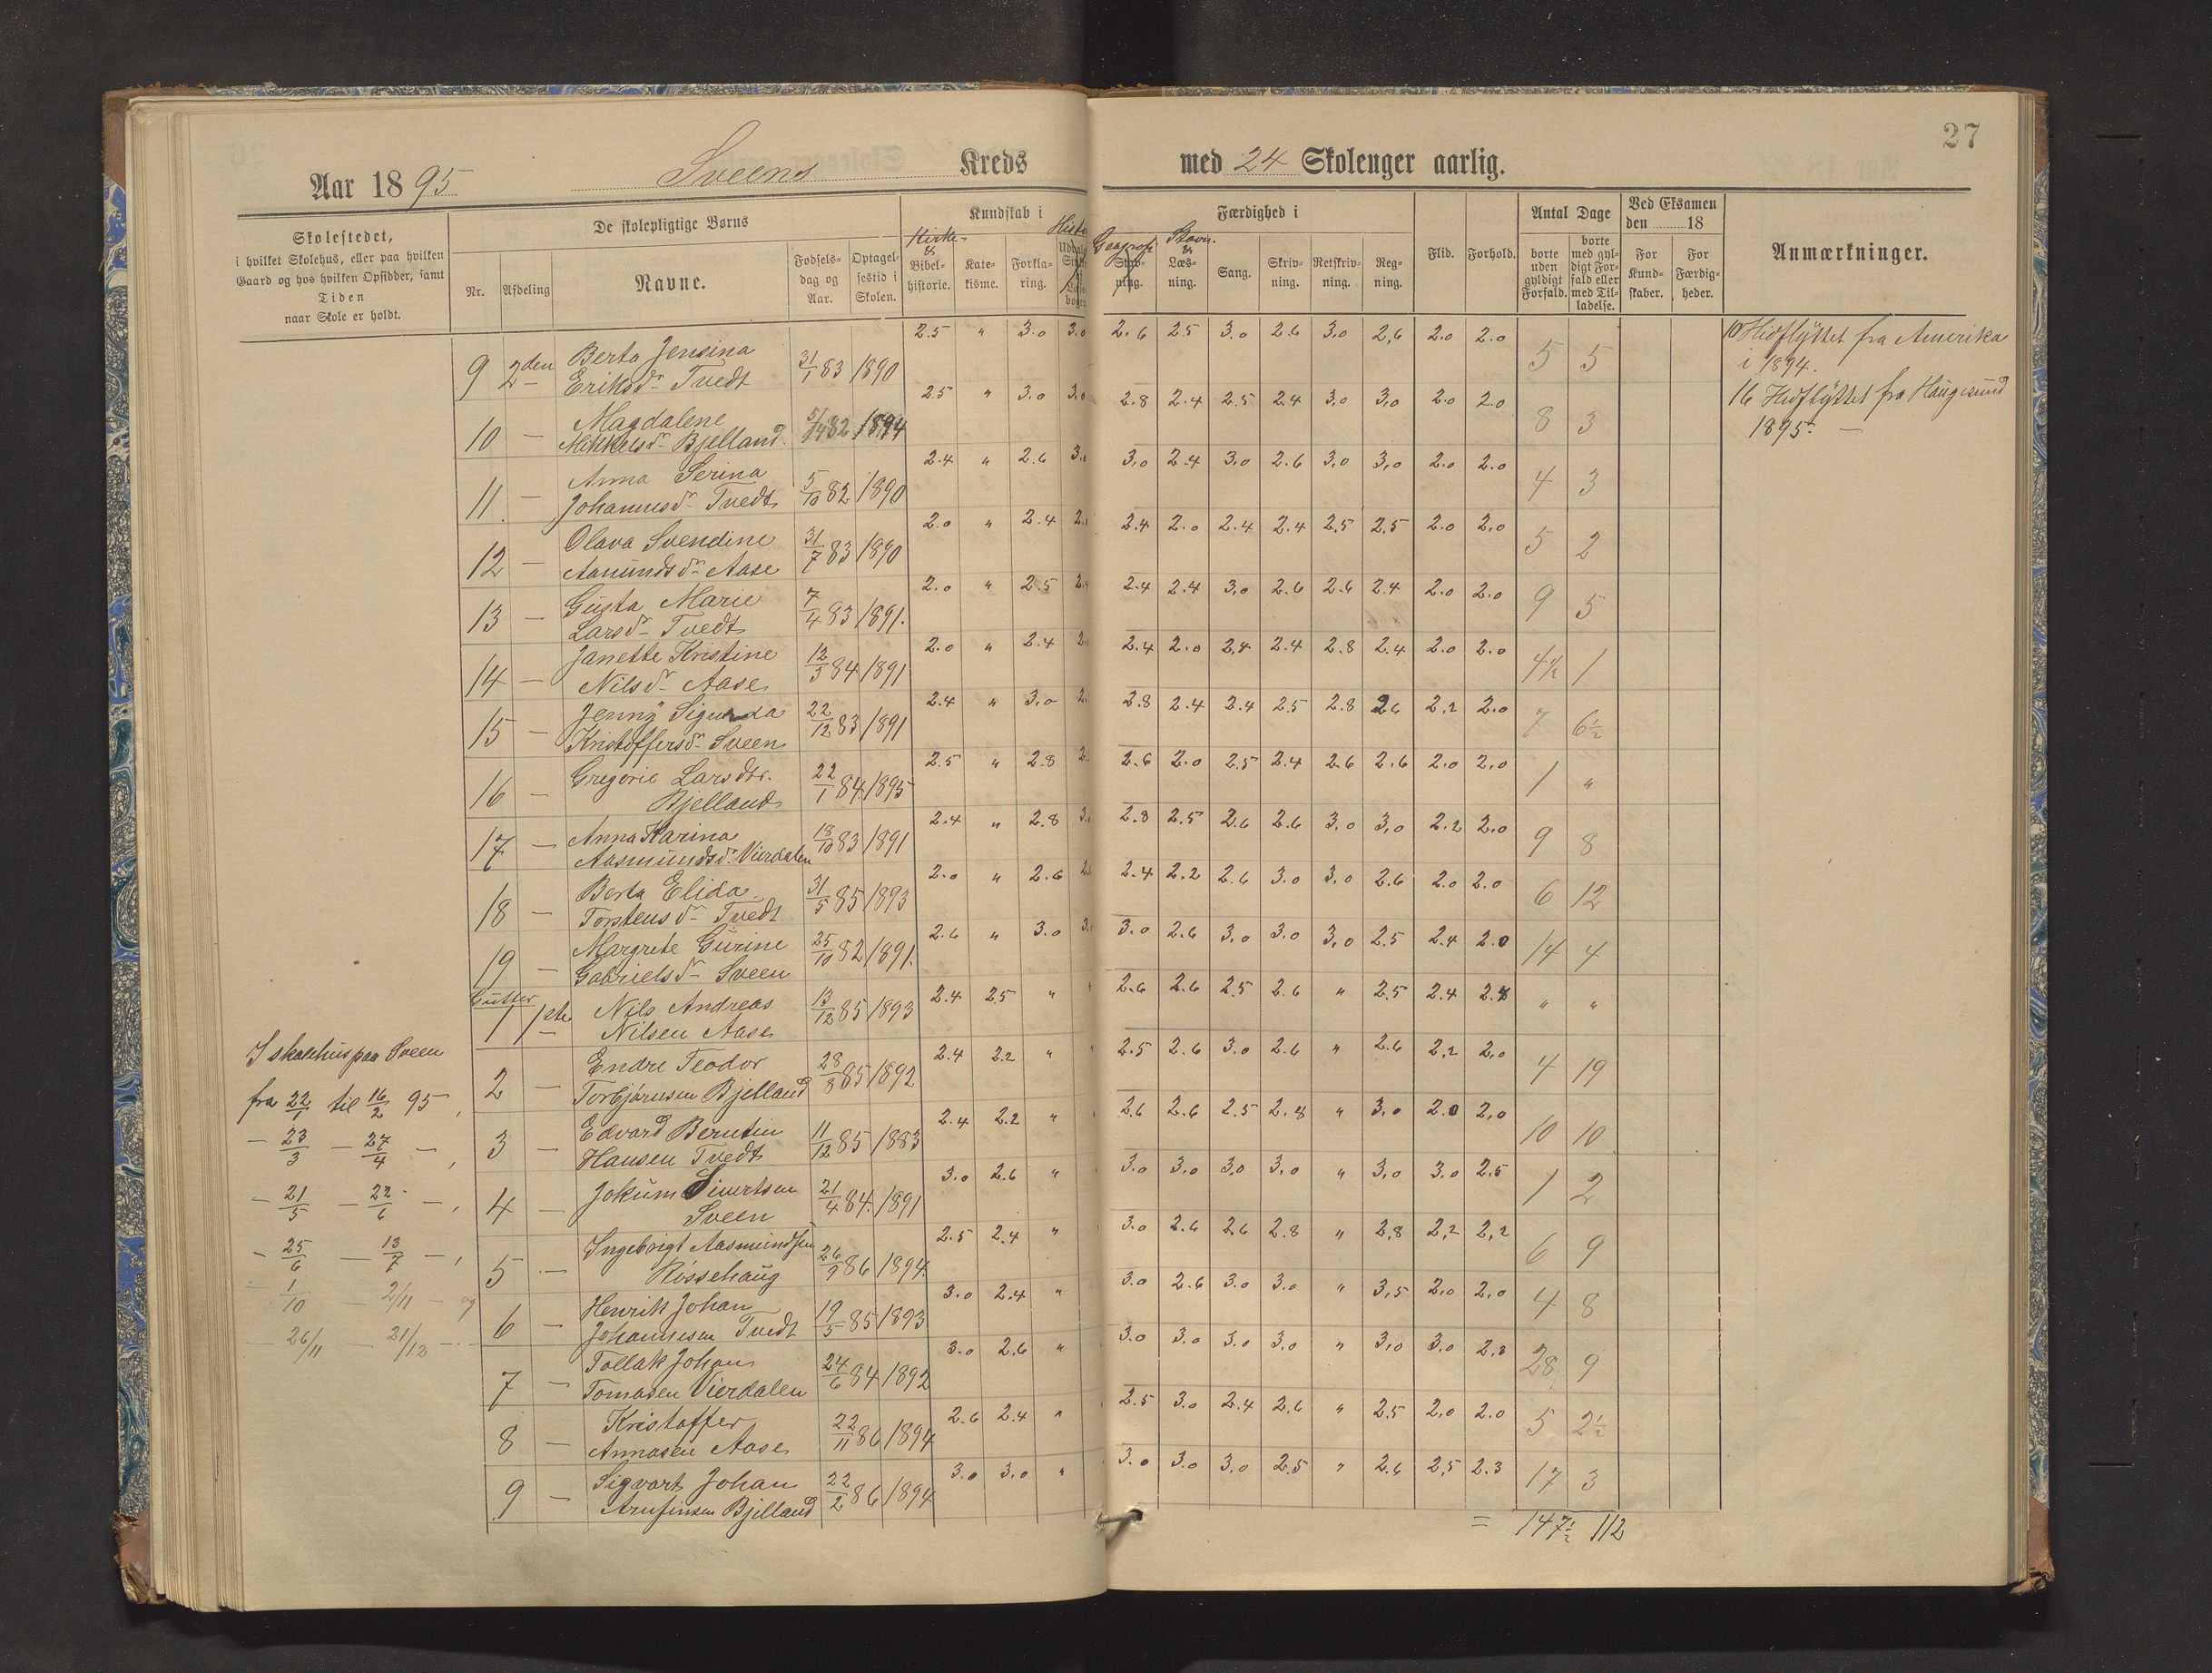 27
Aar 1895 Sveens Kreds med 24 Skolenger aarlig.
Skolestedet,
i hvilket Skolehus, eller paa hvilken
Gaard og hos hvilken Opsidder, samt
Tiden
naar Skole er holdt.
De skolepligtige Børns
Nr. Afdeling Navne. Fødsels-dag og Aar. Optagel-sestid i Skolen.
Kundskab i
Kirke- & Bibel-historie. Kate-kisme. Forkla-ring.
Færdighed i
Geografi Stavn. & Læs-ning. Sang. Skriv-ning. Retskriv-ning. Reg-ning.
Flid. Forhold.
Antal Dage
borte uden gyldigt Forfald. borte med gyl-digt For-fald eller med Til-ladelse.
Ved Eksamen den 18
For Kund-skaber. For Færdig-heder.
Anmærkninger.
9 2den Berta Jensina Eriksdr Tvedt 31/1 83 1890 2.5 " 3.0 3.0 2.6 2.5 3.0 2.6 3.0 2,6 2.0 2.0 5 5
10 Hidflyttet fra Amerika
i 1894.
10 — Magdalene Mikkelsdr Bjelland 5/4 82 1894 2.5 " 3.0 3.0 2.8 2.4 2.5 2.4 3,0 3,0 2.0 2.0 8 3
16 Hidflyttet fra Haugesund
1895. —
11 — Anna Serina Johannesdr Tvedt 5/10 82 1890 2.4 " 2.6 3,0 2.4 3,0 2.6 3,0 3,0 2.0 2.0 4 3
12 — Olava Svendine Aamundsdr Aase 31/7 83 1890 2.0 " 2.4 2.4 2.0 2.4 2.4 2,5 2.5 2.0 2,0 5 2
13 — Gusta Marie Larsdr Tvedt 7/4 83 1891. 2.0 " 2.5 2.4 2.4 3,0 2.6 2.6 2.4 2.0 2.0 9 5
14 — Janette Kristine Nilsdr Aase 12/3 84 1891 2.0 " 2.4 2.4 2.0 2,4 2.4 2.8 2.4 2.0 2.0 4½ 1
15 — Jenny Sigunda Kristoffersdr Sveen 22/12 83 1891 2.4 " 3.0 2.8 2.4 2.4 2.5 2.8 26 2,2 2.0 7 6½
16 — Gregorie Larsdtr. Bjelland 22/1 84. 1895 2.5 " 2.8 2.6 2.0 2.5 2.4 2.6 2.6 2.0 2,0 1 "
17 — Anna Karina Aasmundsdr Vierdalen 18/10 83 1891 2.4 " 2.8 2.8 2.5 2.6 2.6 3,0 3,0 2.2 2.0 9 8
18 — Berta Elida Torstensdr Tvedt 31/5 85 1893 2.0 " 2.6 2.4 2.2 2.6 3.0 3,0 2.6 2.0 2.0 6 12
19 — Margrete Gurine Gabrielsdr Sveen 25/10 82 1891. 2.6 " 3.0 3.0 2.6 3,0 3.0 3,0 2.5 2.4 2.0 14 4
Gutter
1 1ste Nils Andreas Nilsen Aase 13/12 85 1893 2.4 2.5 " 2.6 2.6 2.5 2.6 " 2,5 2.4 " "
I skolehus paa Sveen
2 — Endre Teodor Torbjørnsen Bjelland 28/8 85 1892 2.4 2.2 " 2.5 2.6 3.0 2.6 " 2.6 2,2 2,0 4 19
fra 22/1 til 16/2 95,
3 — Edvard Berntin Hansen Tvedt 11/12 85 1883 2.4 2.2 " 2.6 2.6 2.5 2.8 " 3,0 2.0 2,0 10 10
— 23/3 — 27/4 —,
4 — Jokum Sivertsen Sveen 21/4 84. 1891 3.0 2.6 " 3.0 3.0 3,0 3,0 " 3,0 3.0 2.5 1 2
— 21/5 — 22/6 —,
5 — Ingebrigt Aasmundsen Røssehaug 26/9 86 1894. 2.5 2.4 " 3.0 2.6 2,6 2.8 " 2,8 2,2 2,2 6 9
— 25/6 — 13/7 —,
— 1/10 — 2/11 — og
6 — Henrik Johan Johannesen Tvedt 19/5 85 1893 3.0 2.4 " 3.0 2.6 3.0 3.0 " 3,5 2,0 2,0 4 8
— 26/11 — 21/12 —
7 — Tollak Johan Tomasen Vierdalen 24/6 84 1892 3.0 2.6 " 3.0 3.0 3.0 3.0 " 3,0 3.0 2.3 28 9
8 — Kristoffer Annasen Aase 22/11 86 1894 2.6 2.4 " 2.5 3.0 2.4 2,6 " 2.5 2,0 2.0 5 2½
9 — Sigvart Johan Arnfinsen Bjelland 22/2 86 1894 3.0 3,0 " 3.0 3.0 3,0 2.5 " 2.6 2,5 2.3 17 3
= 147½ 112